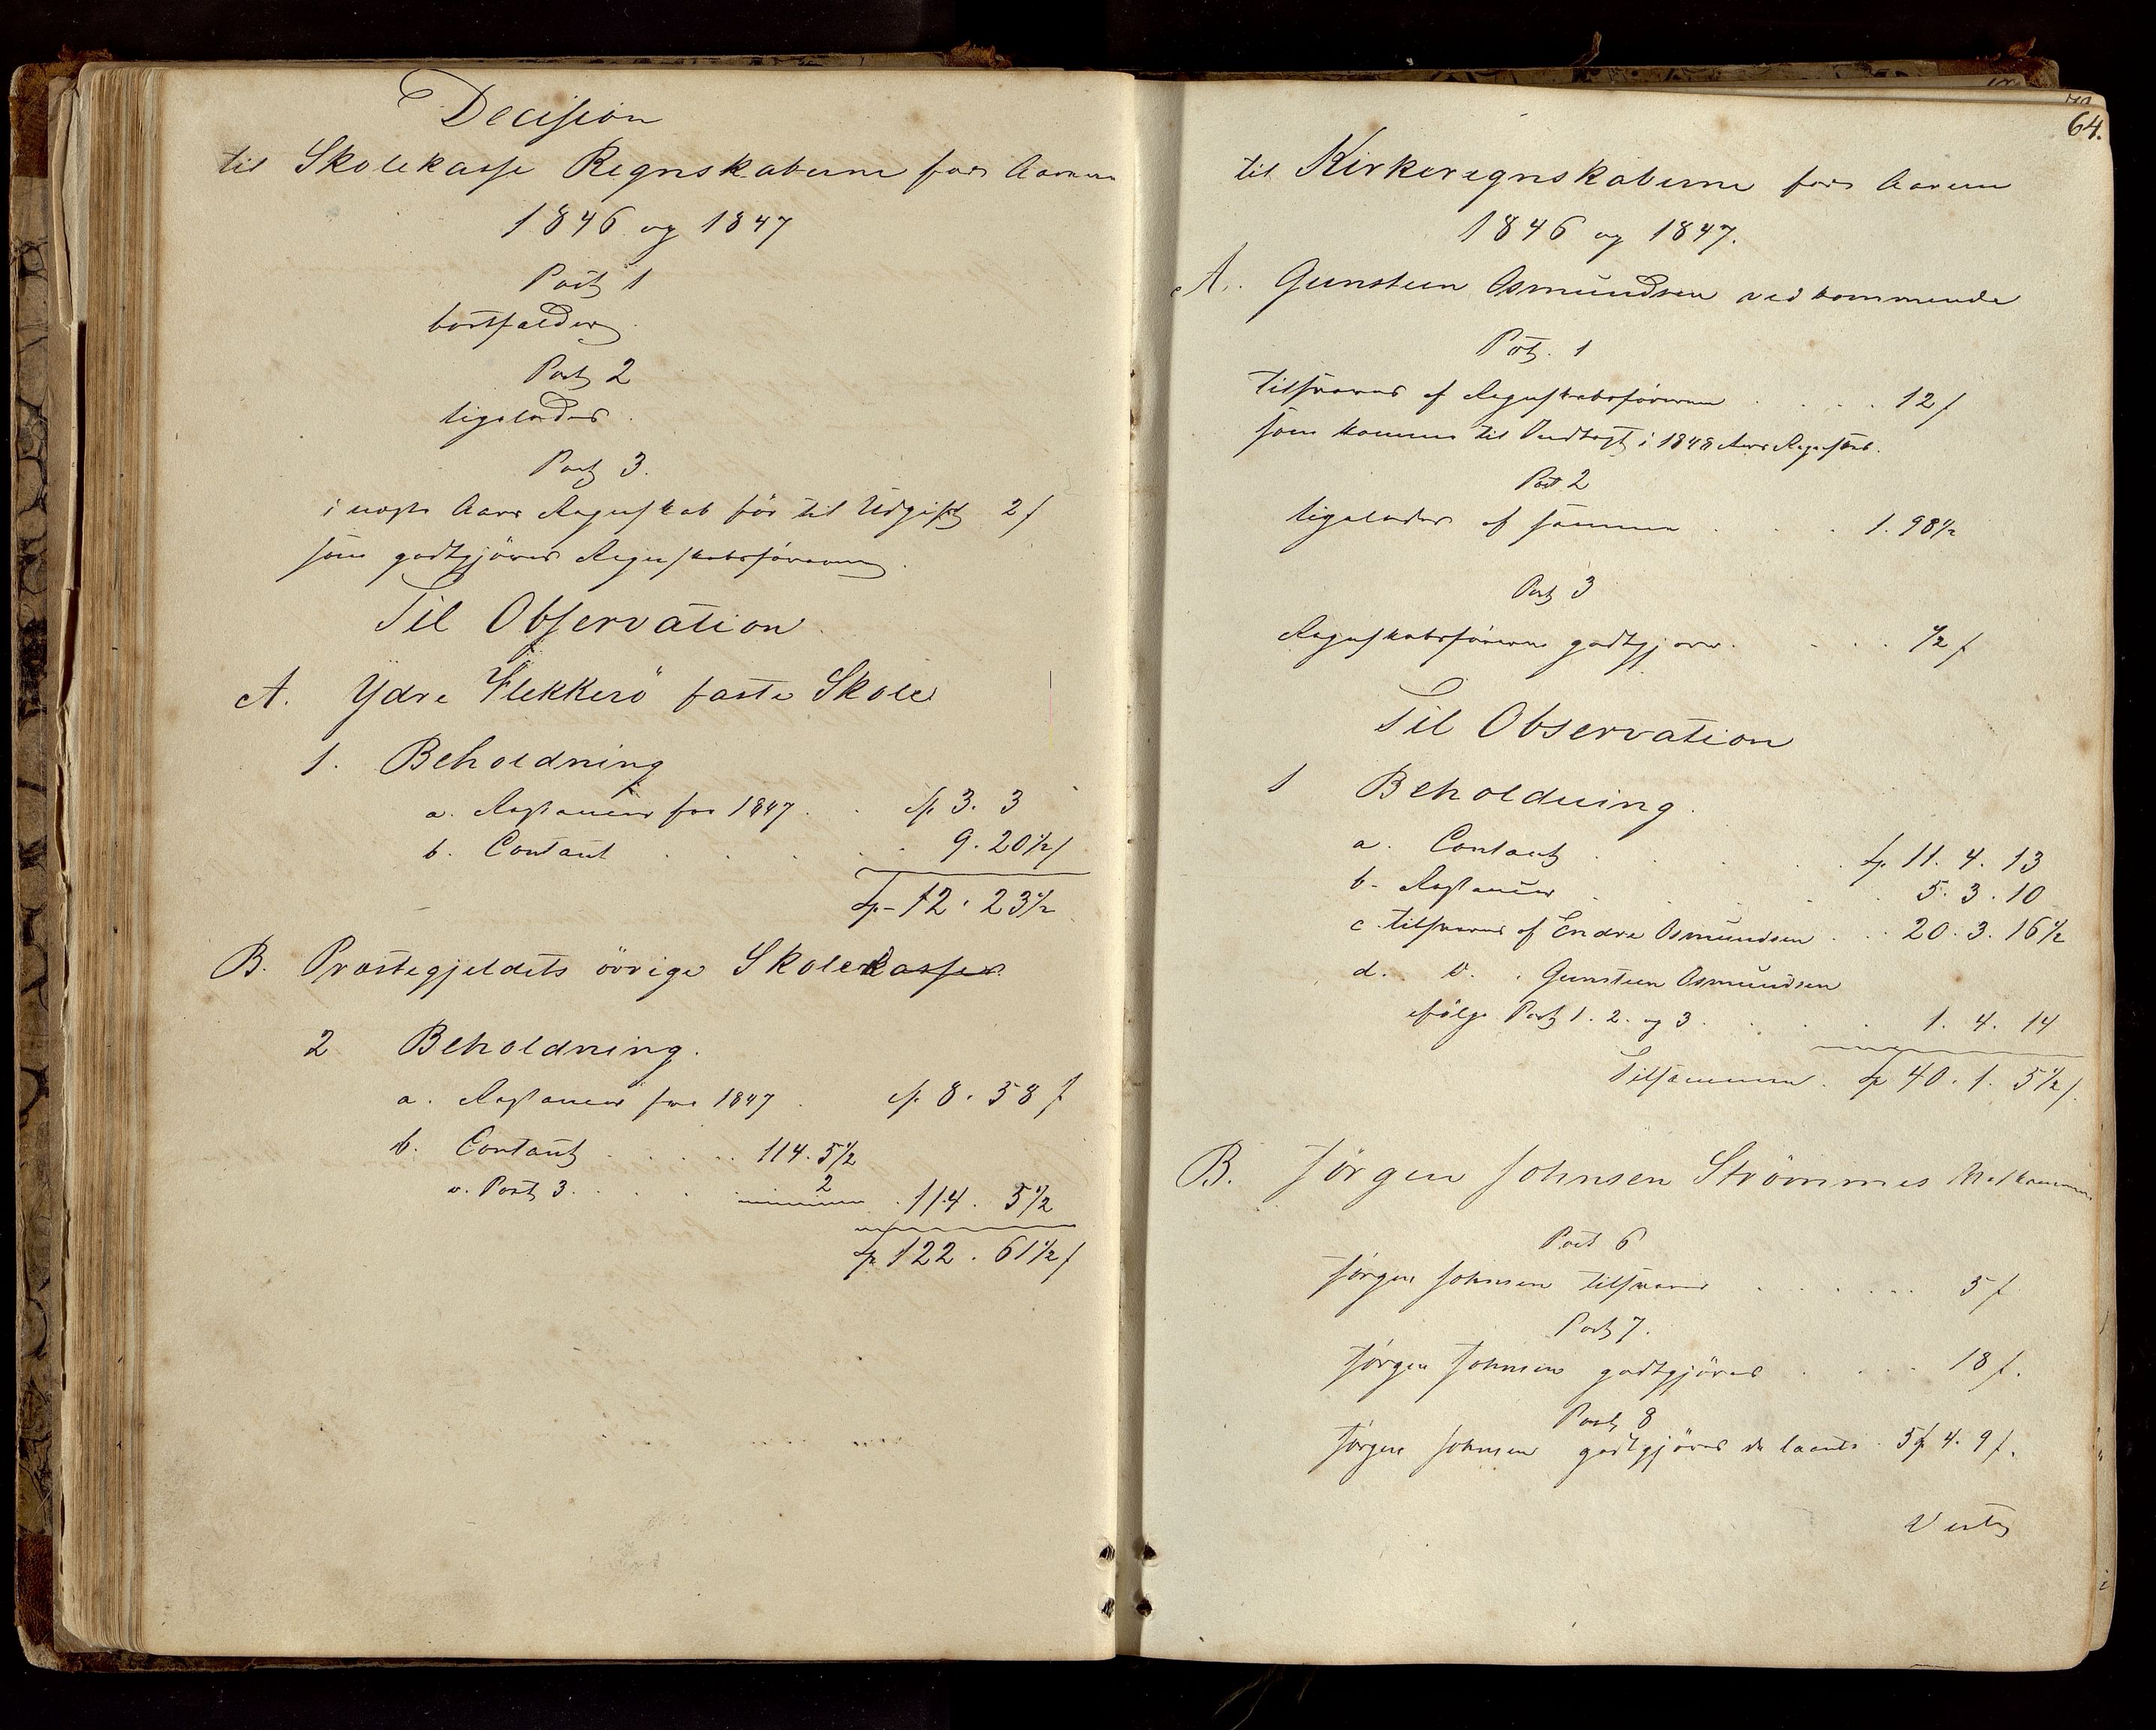 Decision
til Skolekasse Regnskaberne for Aarene
1846 og 1847
Post 1
bortfalder
Post 2
ligeledes.
Post 3.
i næste Aars Regnskab før til Udgift 2 ſ
som godtgjöres Regnskabsføreren.
Til Observation
A. Ydre Flekkerö faste Skole
1. Beholdning
a. Restancer for 1847 . . 3. 3
b. Contant . . . . . 9. 20½ ſ
12. 23½
B. Præstegjeldets övrige Skolekasser
2 Beholdning.
a. Restancer for 1847 . 8. 58 ſ
b. Contant . . . . 114. 5½
Post 3. . . . . 2
114. 5½
122. 61½ ſ
64.
til Kirkeregnskaberne for Aarene
1846 og 1847.
A. Gunsteen Osmundsen vedkommende
Post. 1
Tilsvares af Regnskabsföreren . . . . 12 ſ
som kommer til Indtægt i 1848 Aars Regnskab.
Post 2
ligeledes af samme . . . 1. 98½
Post 3
Regnskabsföreren godtgjöres . . . . ½ ſ
Til Observation
1 Beholdning.
a. Contant . . . . . 11. 4. 13
b. Restancer . . . . . 5. 3. 10
c. tilsvares af Endre Osmundsen . . 20. 3. 16½
d. D. . Gunsteen Osmundsen
ifölge Post 1. 2. og 3. . . . 1. 4. 14
Tilsammen. 40. 1. 5½ ſ.
B. Jörgen Johnsen Strömmes Vedkommende
Post 6
Jörgen Johnsen tilsvarer . . . . . . 5 ſ
Post 7.
Jörgen Johnsen godtgjöres . . . . 18 ſ.
Post 8
Jörgen Johnsen godtgjöres de laante . 5 4. 9 ſ.
Vertz